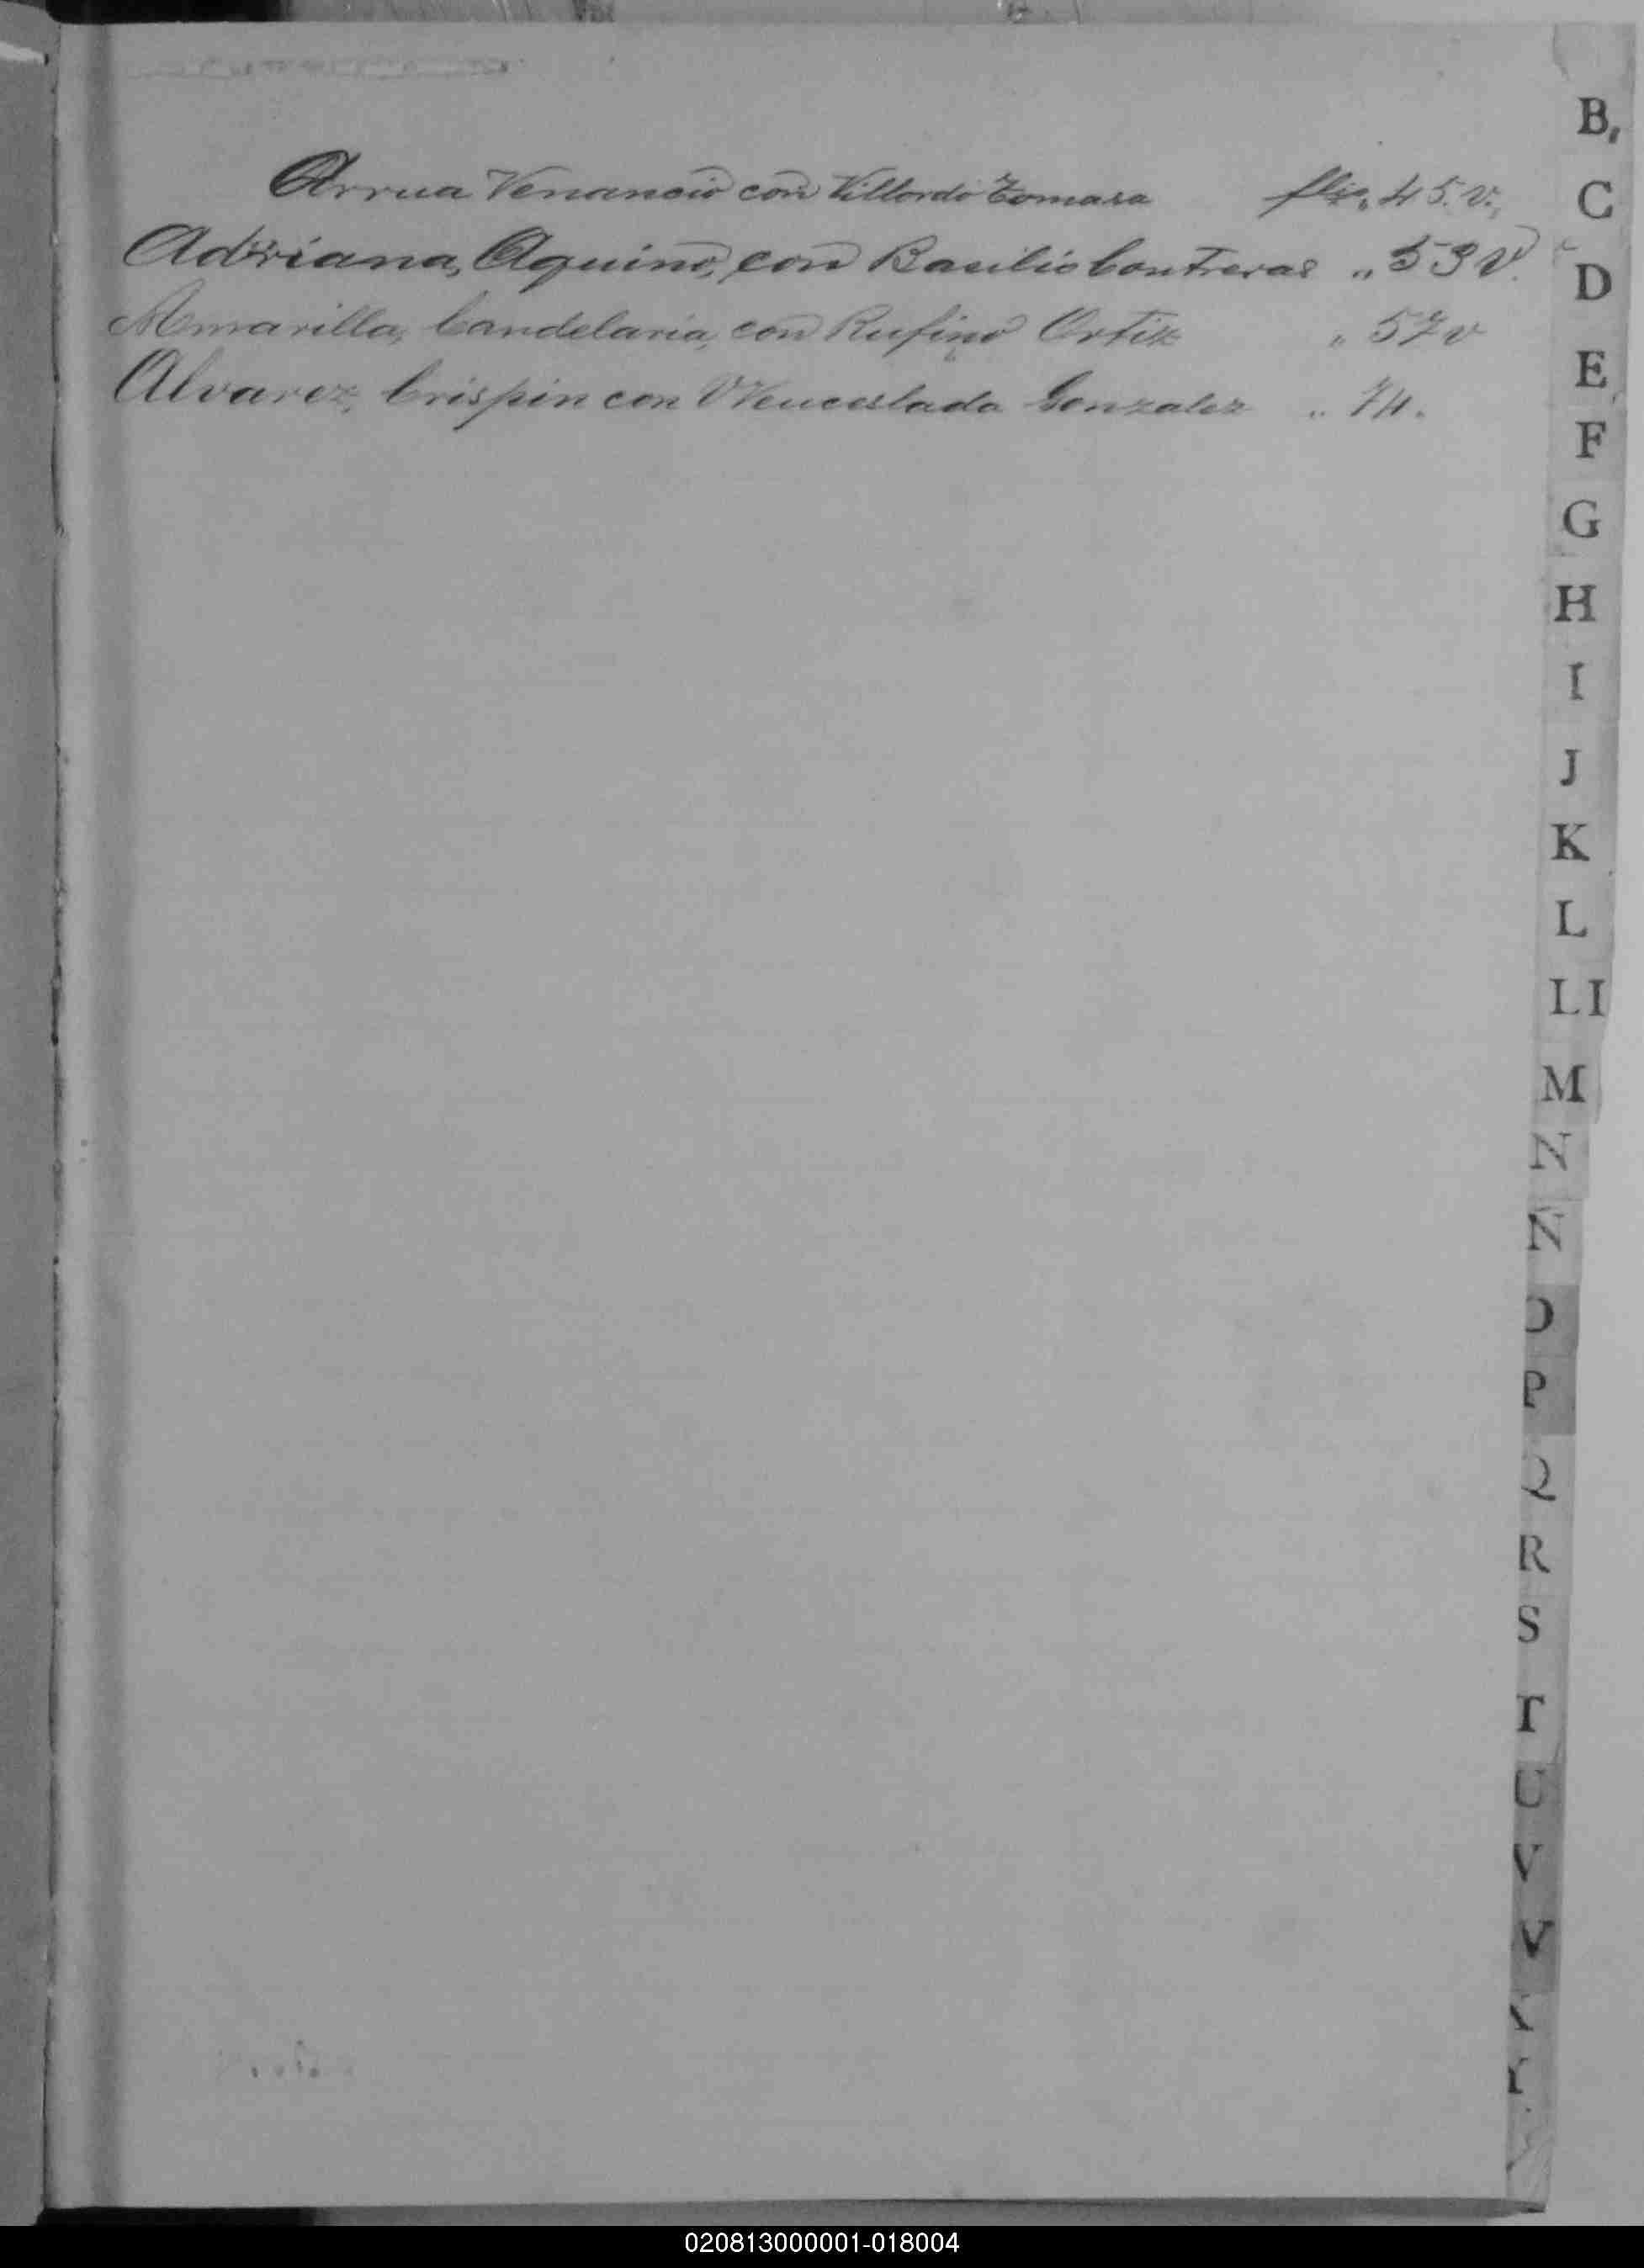 Arrua Venancio con Villordo Tomasa 45. v.
Adriana, Aquino, con Basilio Contreras „ 53 v.
Amarilla, Candelaria, con Rufino Ortiz „ 57 v
Alvarez, Crispin con Wenceslada Gonzalez „ 74.
B,
C
D
E
F
G
H
I
J
K
L
LI
M
N
Ñ
O
P
Q
R
S
T
U
V
V
Y
020813000001-018004